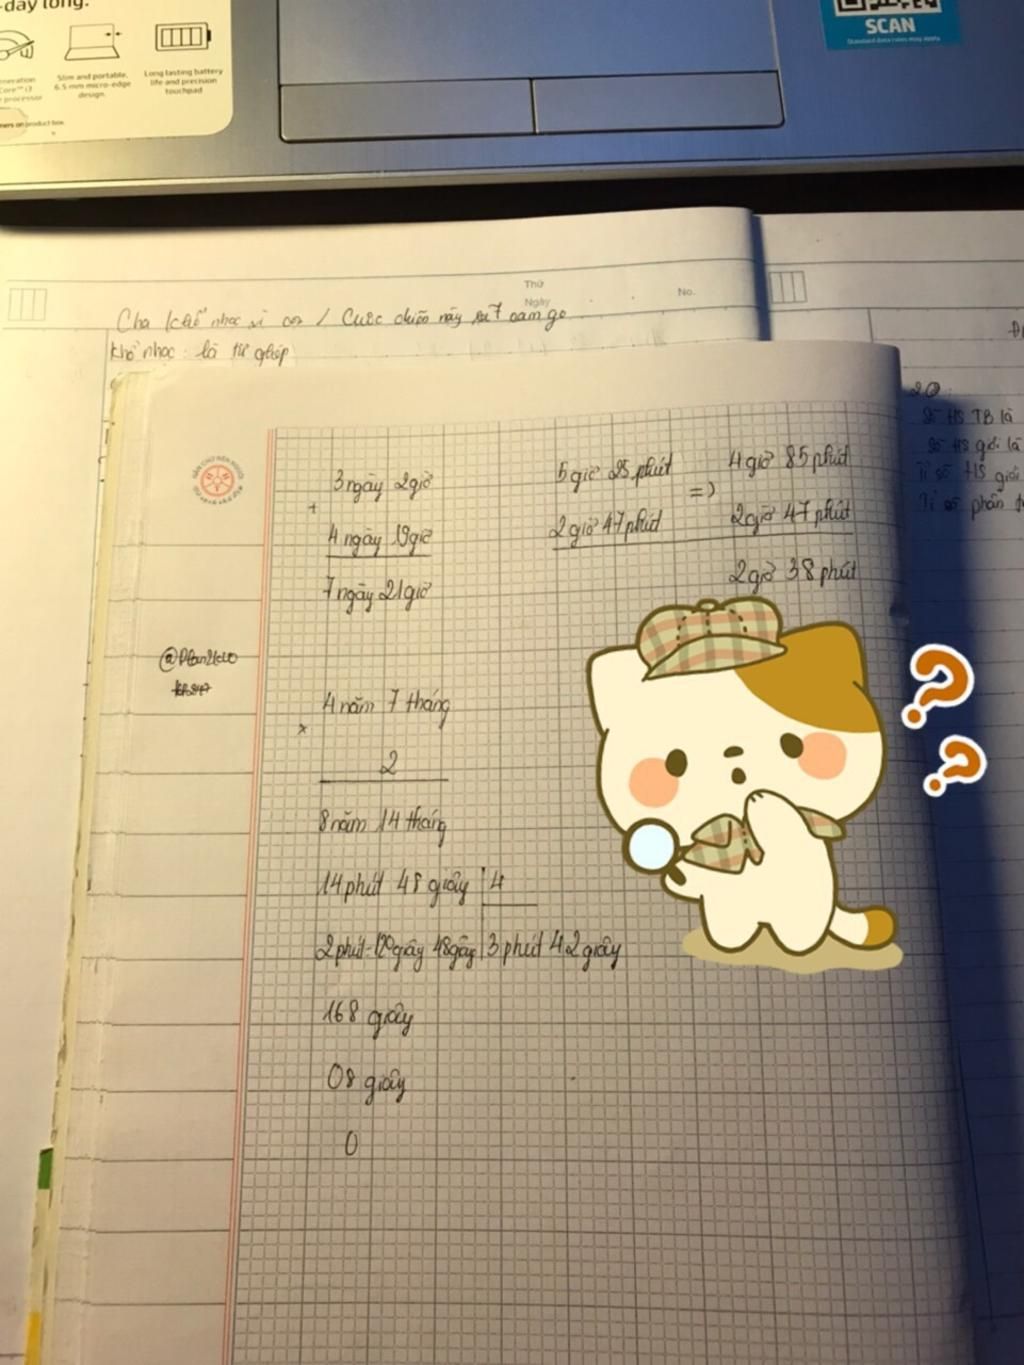 -day long.
Slim and portable,
6.5 mm micro-edge
design.
Long lasting battery
life and precision
touchpad
SCAN
Standard data rates may apply
Thứ
Ngày
No.
Cha khổ nhọc vì con / Cuộc
khổ nhọc: là từ ghép
3 ngày 2 giờ
+
4 ngày 19 giờ
7 ngày 21 giờ
5 giờ 25 phút
2 giờ 47 phút
=)
4 giờ 85 phút
2 giờ 47 phút
2 giờ 38 phút
4 năm 7 tháng
×
2
8 năm 14 tháng
14 phút 48 giây 4
2 phút=120giây 48giây 3 phút 42 giây
168 giây
08 giây
0
Số HS TB là
Số HS giỏi là
Tỉ số HS giỏi
Tỉ số phần
? ?